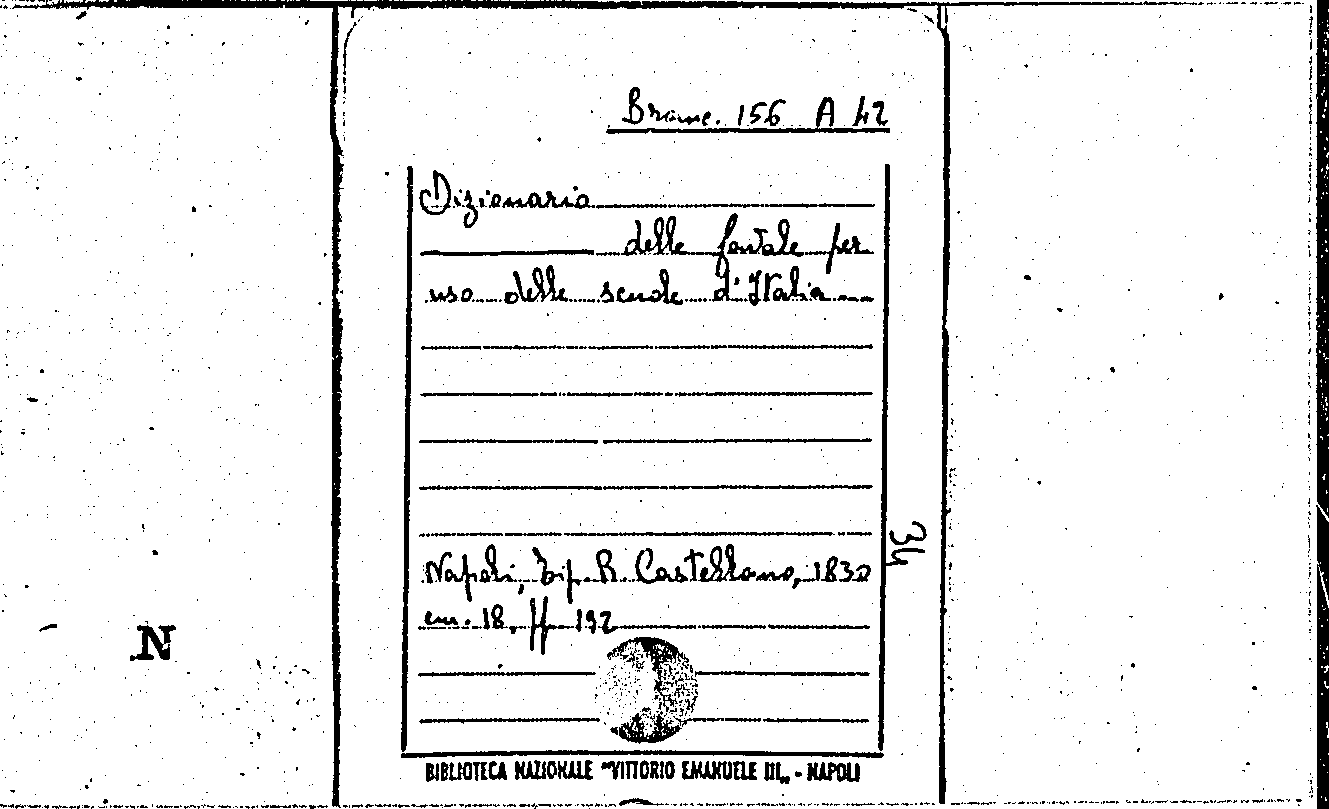 Branc. 156 A 42
Dizionario
delle favole per
uso delle scuole d'Italia
34
Napoli, Tip. R. Castellano, 1830
cm. 18, pp. 192
N
BIBLIOTECA NAZIONALE "VITTORIO EMANUELE III„ - NAPOLI